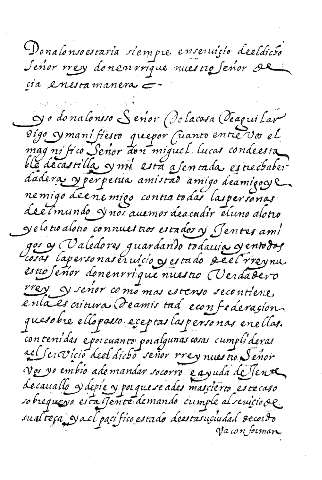 Don alonso estaria siempre en servicio de el dicho
señor rrey don enrrique nuestro señor de
cia en esta manera
yo don alonso señor de la casa de aguilar
digo y manifiesto que por cuanto entre vos el
magnifico señor don miguel lucas condesta
ble de castilla y mi esta asentada estrecha ber
dadera y perpetua amistad amigo de amigo y e
nemigo de enemigo contra todas las personas
de el mundo y nos avemos de acudir el uno al otro
y el otro al otro con nuestros estados y jentes ami
gos y valedores guardando todavia y en todas
cosas la persona servicio y estado de el rrey nu
estro señor don enrrique nuestro verdadero
rrey y señor como mas estenso se contiene
en la escritura de amistad e confederaçion
que sobre ello paso eceptas las personas en ellas
contenidas e por cuanto por algunas cosas cumplideras
a el servicio de el dicho señor rrey nuestro señor
vos yo embio a demandar socorro e ayuda de jente
de cavallo y de pie y porque seades mas cierto este caso
sobre que yo esta jente demando cumple al servicio de
su alteça y a el pacifico estado de esta su ciudad de cordo
va conforman